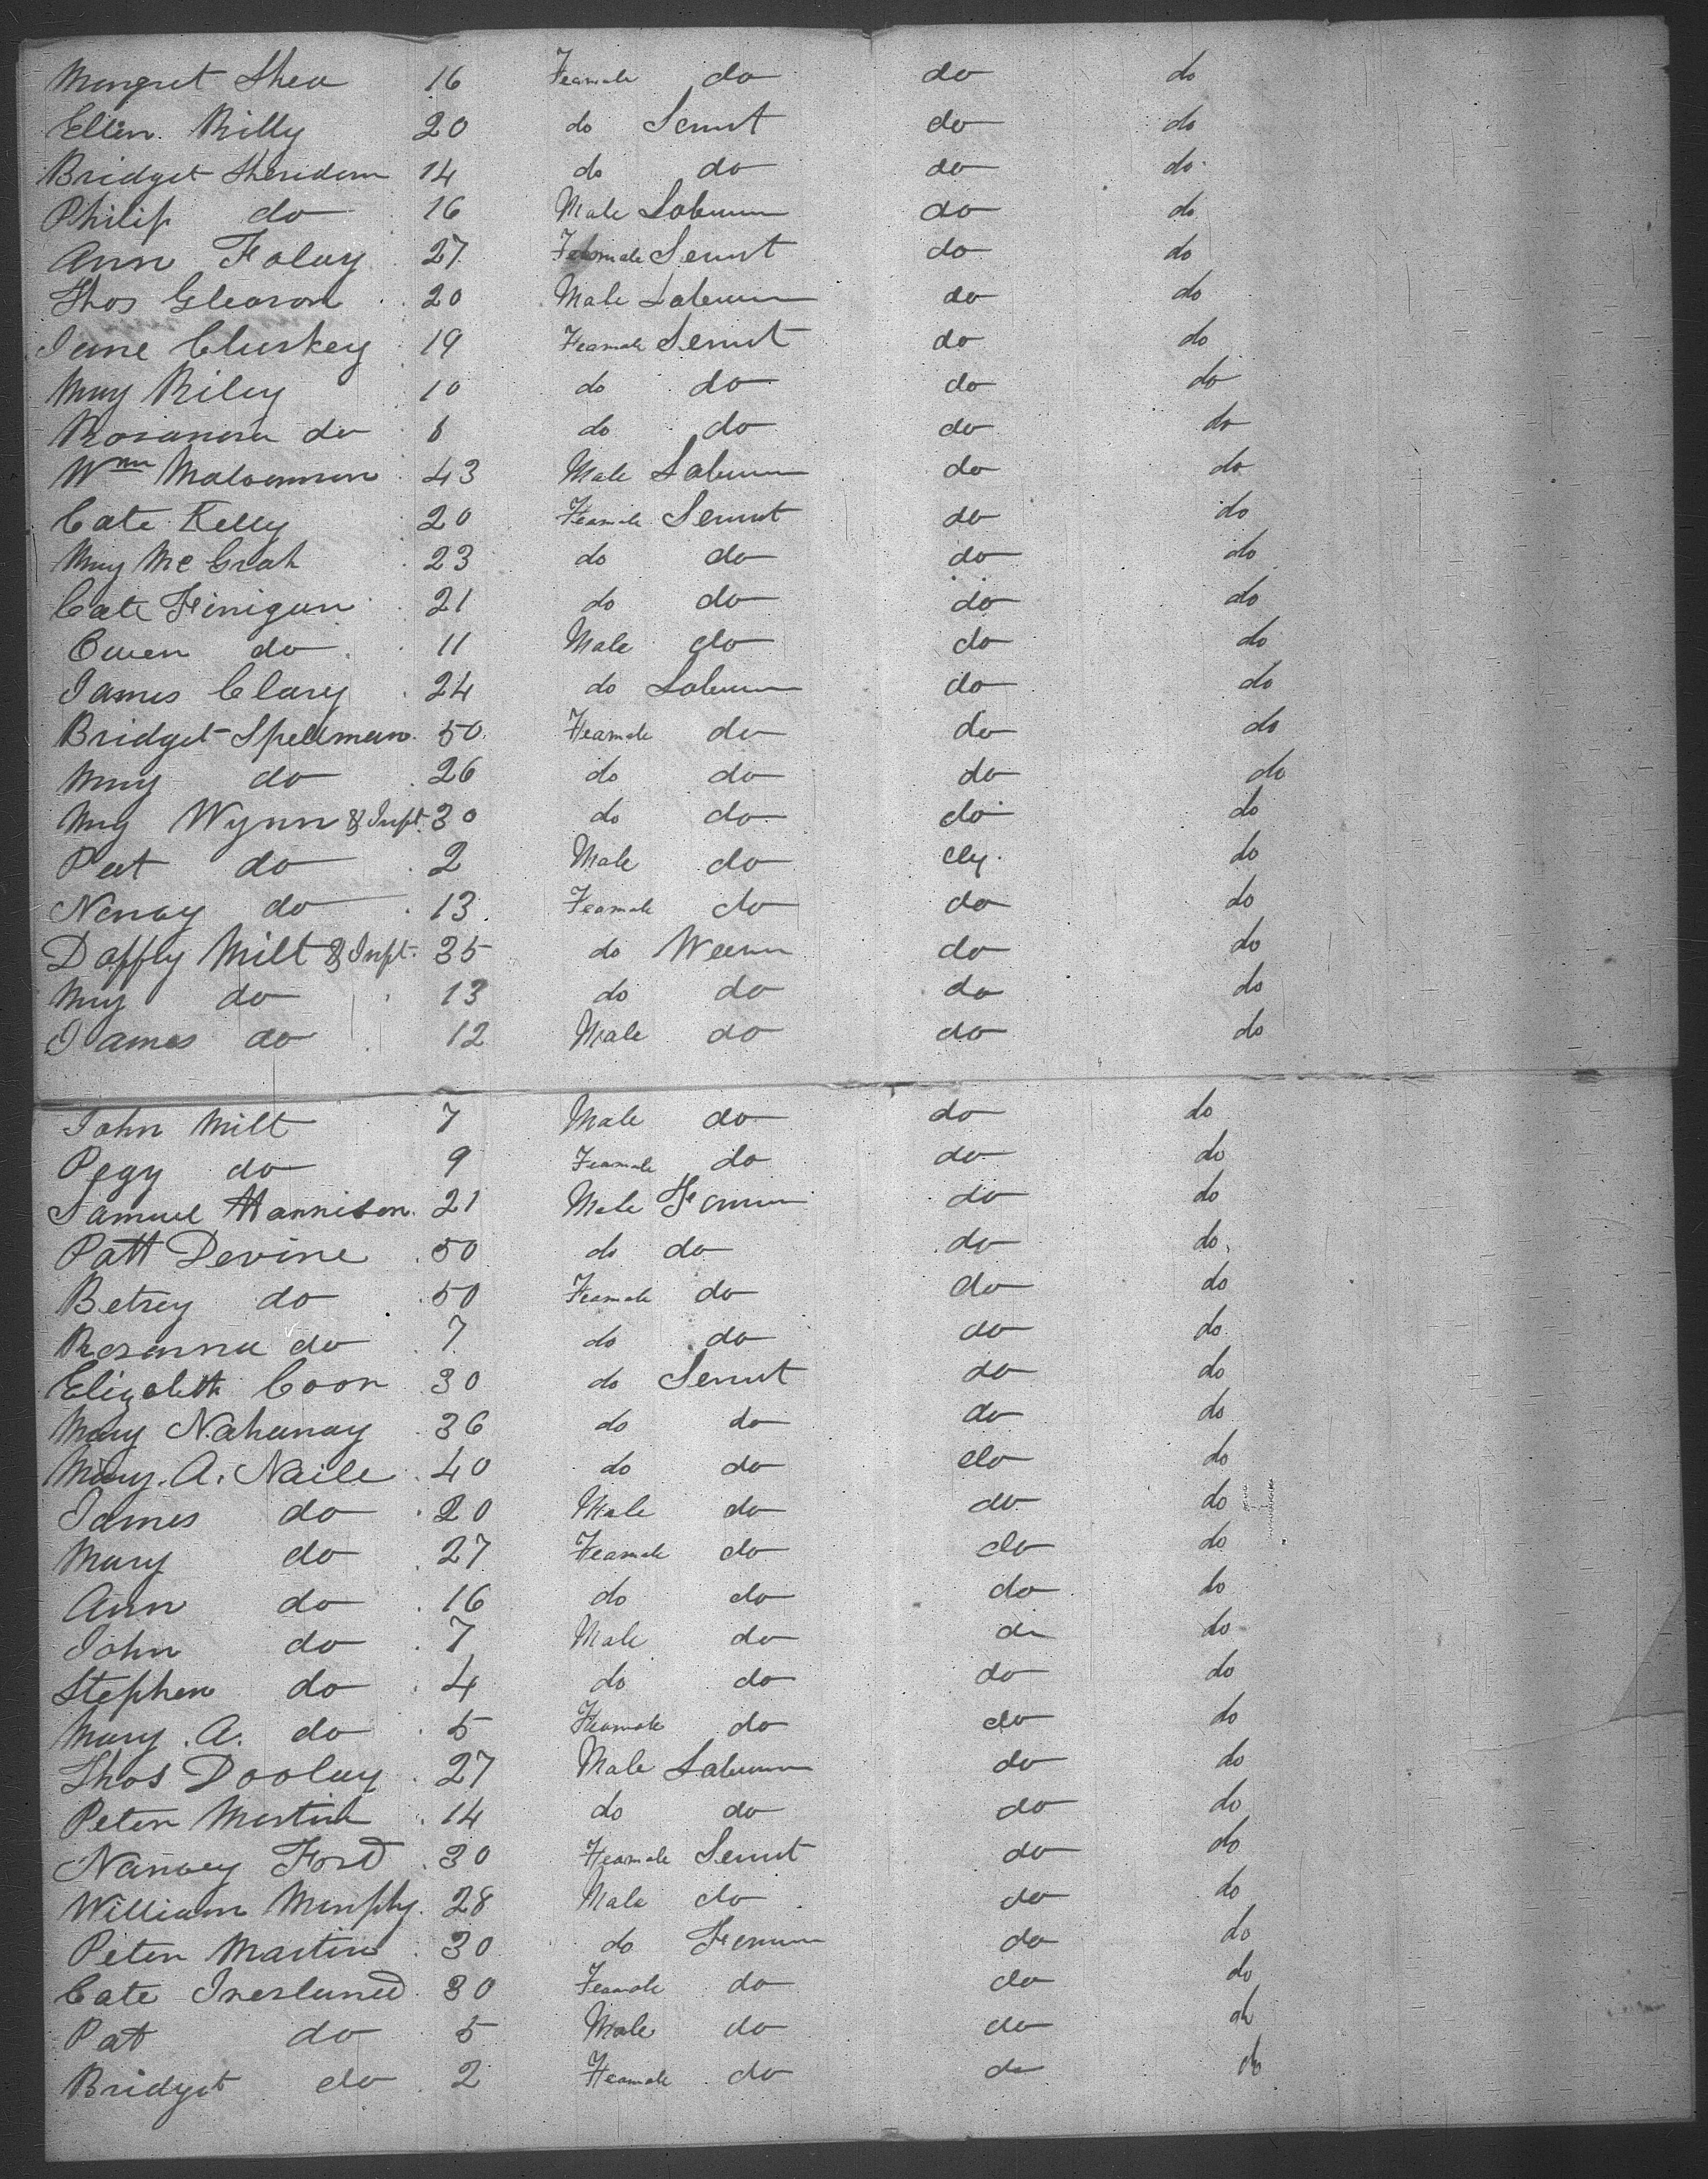 Margret Shea 16 Feamale do do do
Ellen Rilly 20 do Servnt do do
Bridget Sheridan 14 do do do do
Philip do 16 Male Laberur do do
Ann Foley 27 Feamale Servnt do do
Thos Gleason 20 Male Laberur do do
Jane Cluskey 19 Feamale Servnt do do
Mary Riley 10 do do do do
Rosanna do 8 do do do do
Wm 43 Male Laberur do do
Cate Kelly 20 Feamale Servnt do do
Mary McGrah 23 do do do do
Cate Finigan 21 do do do do
Owen do 11 Male do do do
James Clary 24 do Laberur do do
Bridget Spellman 50 Feamale do do do
Mary do 26 do do do do
My Wynn & Inft. 30 do do do do
Pat do 2 Male do do
Nancy do 13 Feamale do do do
Daffly Milt & Inft. 35 do do do
My do 13 do do do do
James do 12 Male do do do
John Milt 7 Male do do do
Pegy do 9 Feamale do do do
Samuel Harrison 21 Male Farmur do do
Patt Devine 50 do do do do
Betsey do 50 Feamale do do do
Rosanna do 7 do do do do
Elizabeth Coon 30 do Servnt do do
Mary Nahanay 36 do do do do
Mary. A. Naile 40 do do do do
James do 20 Male do do do
Mary do 27 Feamale do do do
Ann do 16 do do do do
John do 7 Male do do do
Stephen do 4 do do do do
Mary. A. do 5 Feamale do do do
Thos Dooley 27 Male Laberur do do
Peter Martin 14 do do do do
Nancey Ford 30 Feamale Servnt do do
William Murphy 28 Male do do do
Peter Martin 30 do Farmur do do
Cate 30 Feamale do do do
Pat do 5 Male do do do
Bridget do 2 Feamale do do do